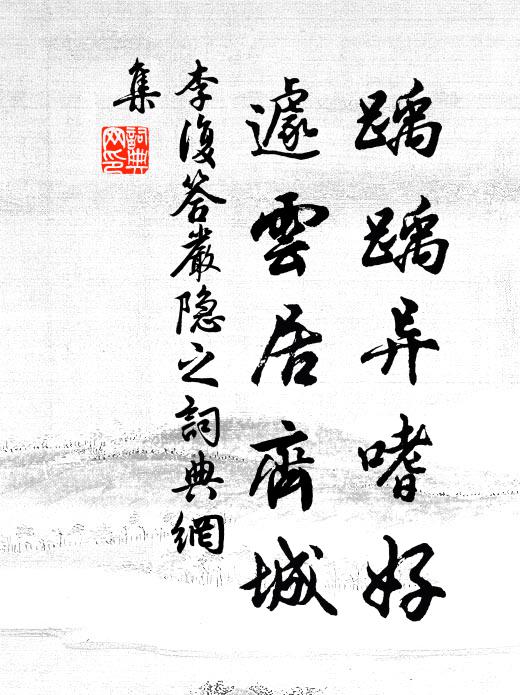 踽踽异嗜好
遽雲居齊城
李復答嚴隐之詞典網
集
詞典网印